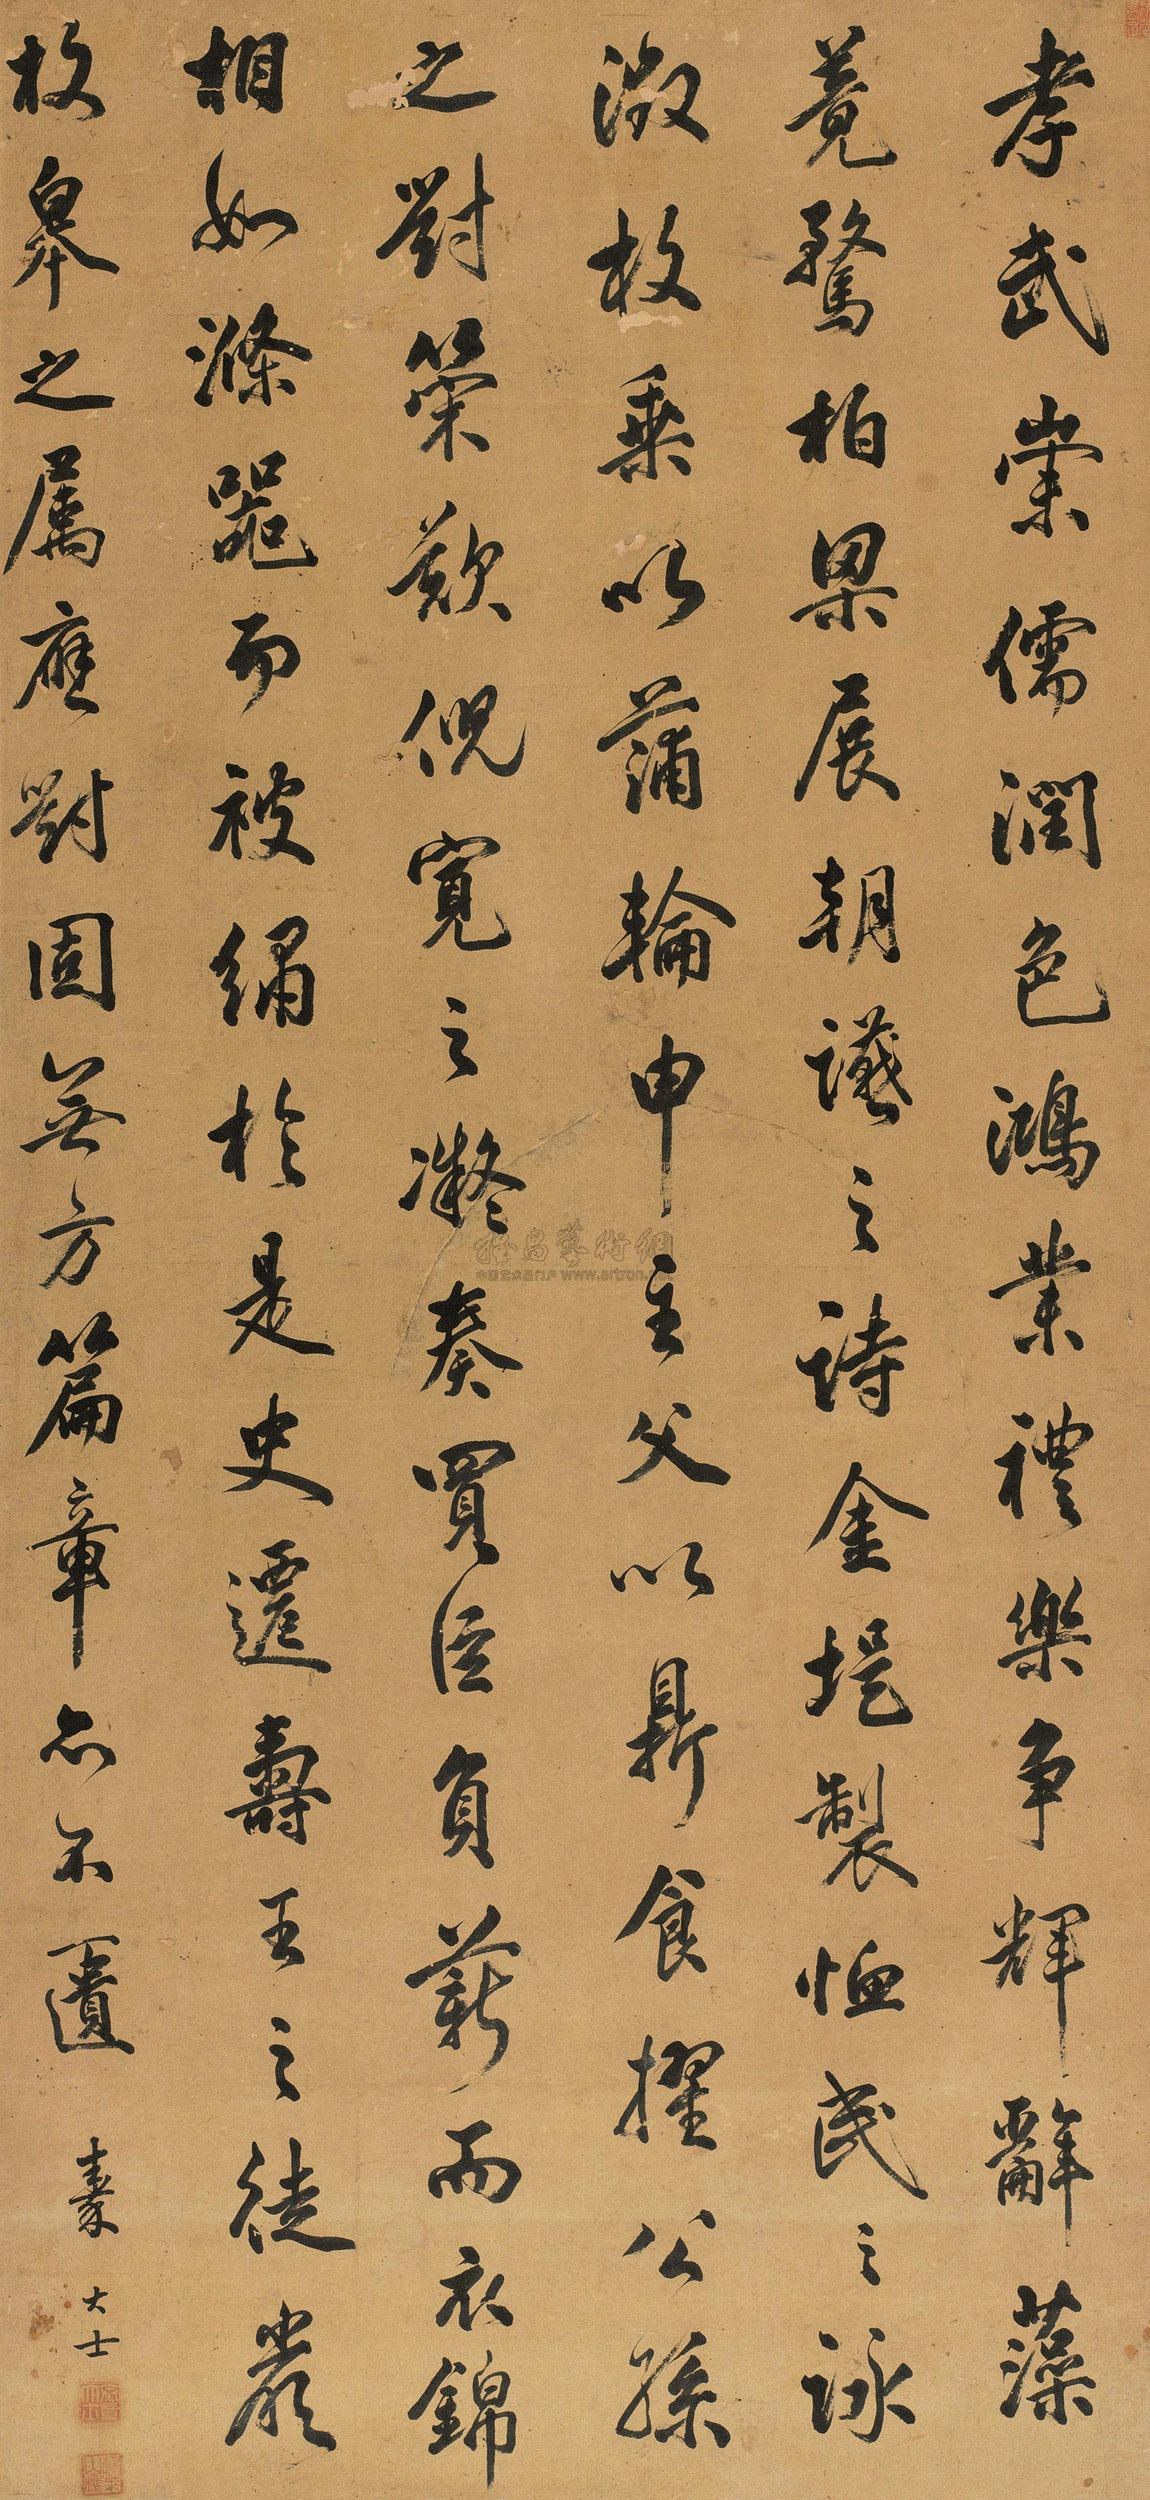 孝武崇儒潤色鴻業禮樂爭輝辭藻
竟騖柏梁展朝讌之詩金堤製恤民之詠
徵枚乘以蒲輪申主父以鼎食擢公孫
之對策歎倪寬之凝奏買臣負薪而衣錦
相如滌器而被繡於是史遷壽王之徒嚴
枚皋之属應對固無方篇章亦不匱
大士
雅昌藝術網
www.artron.